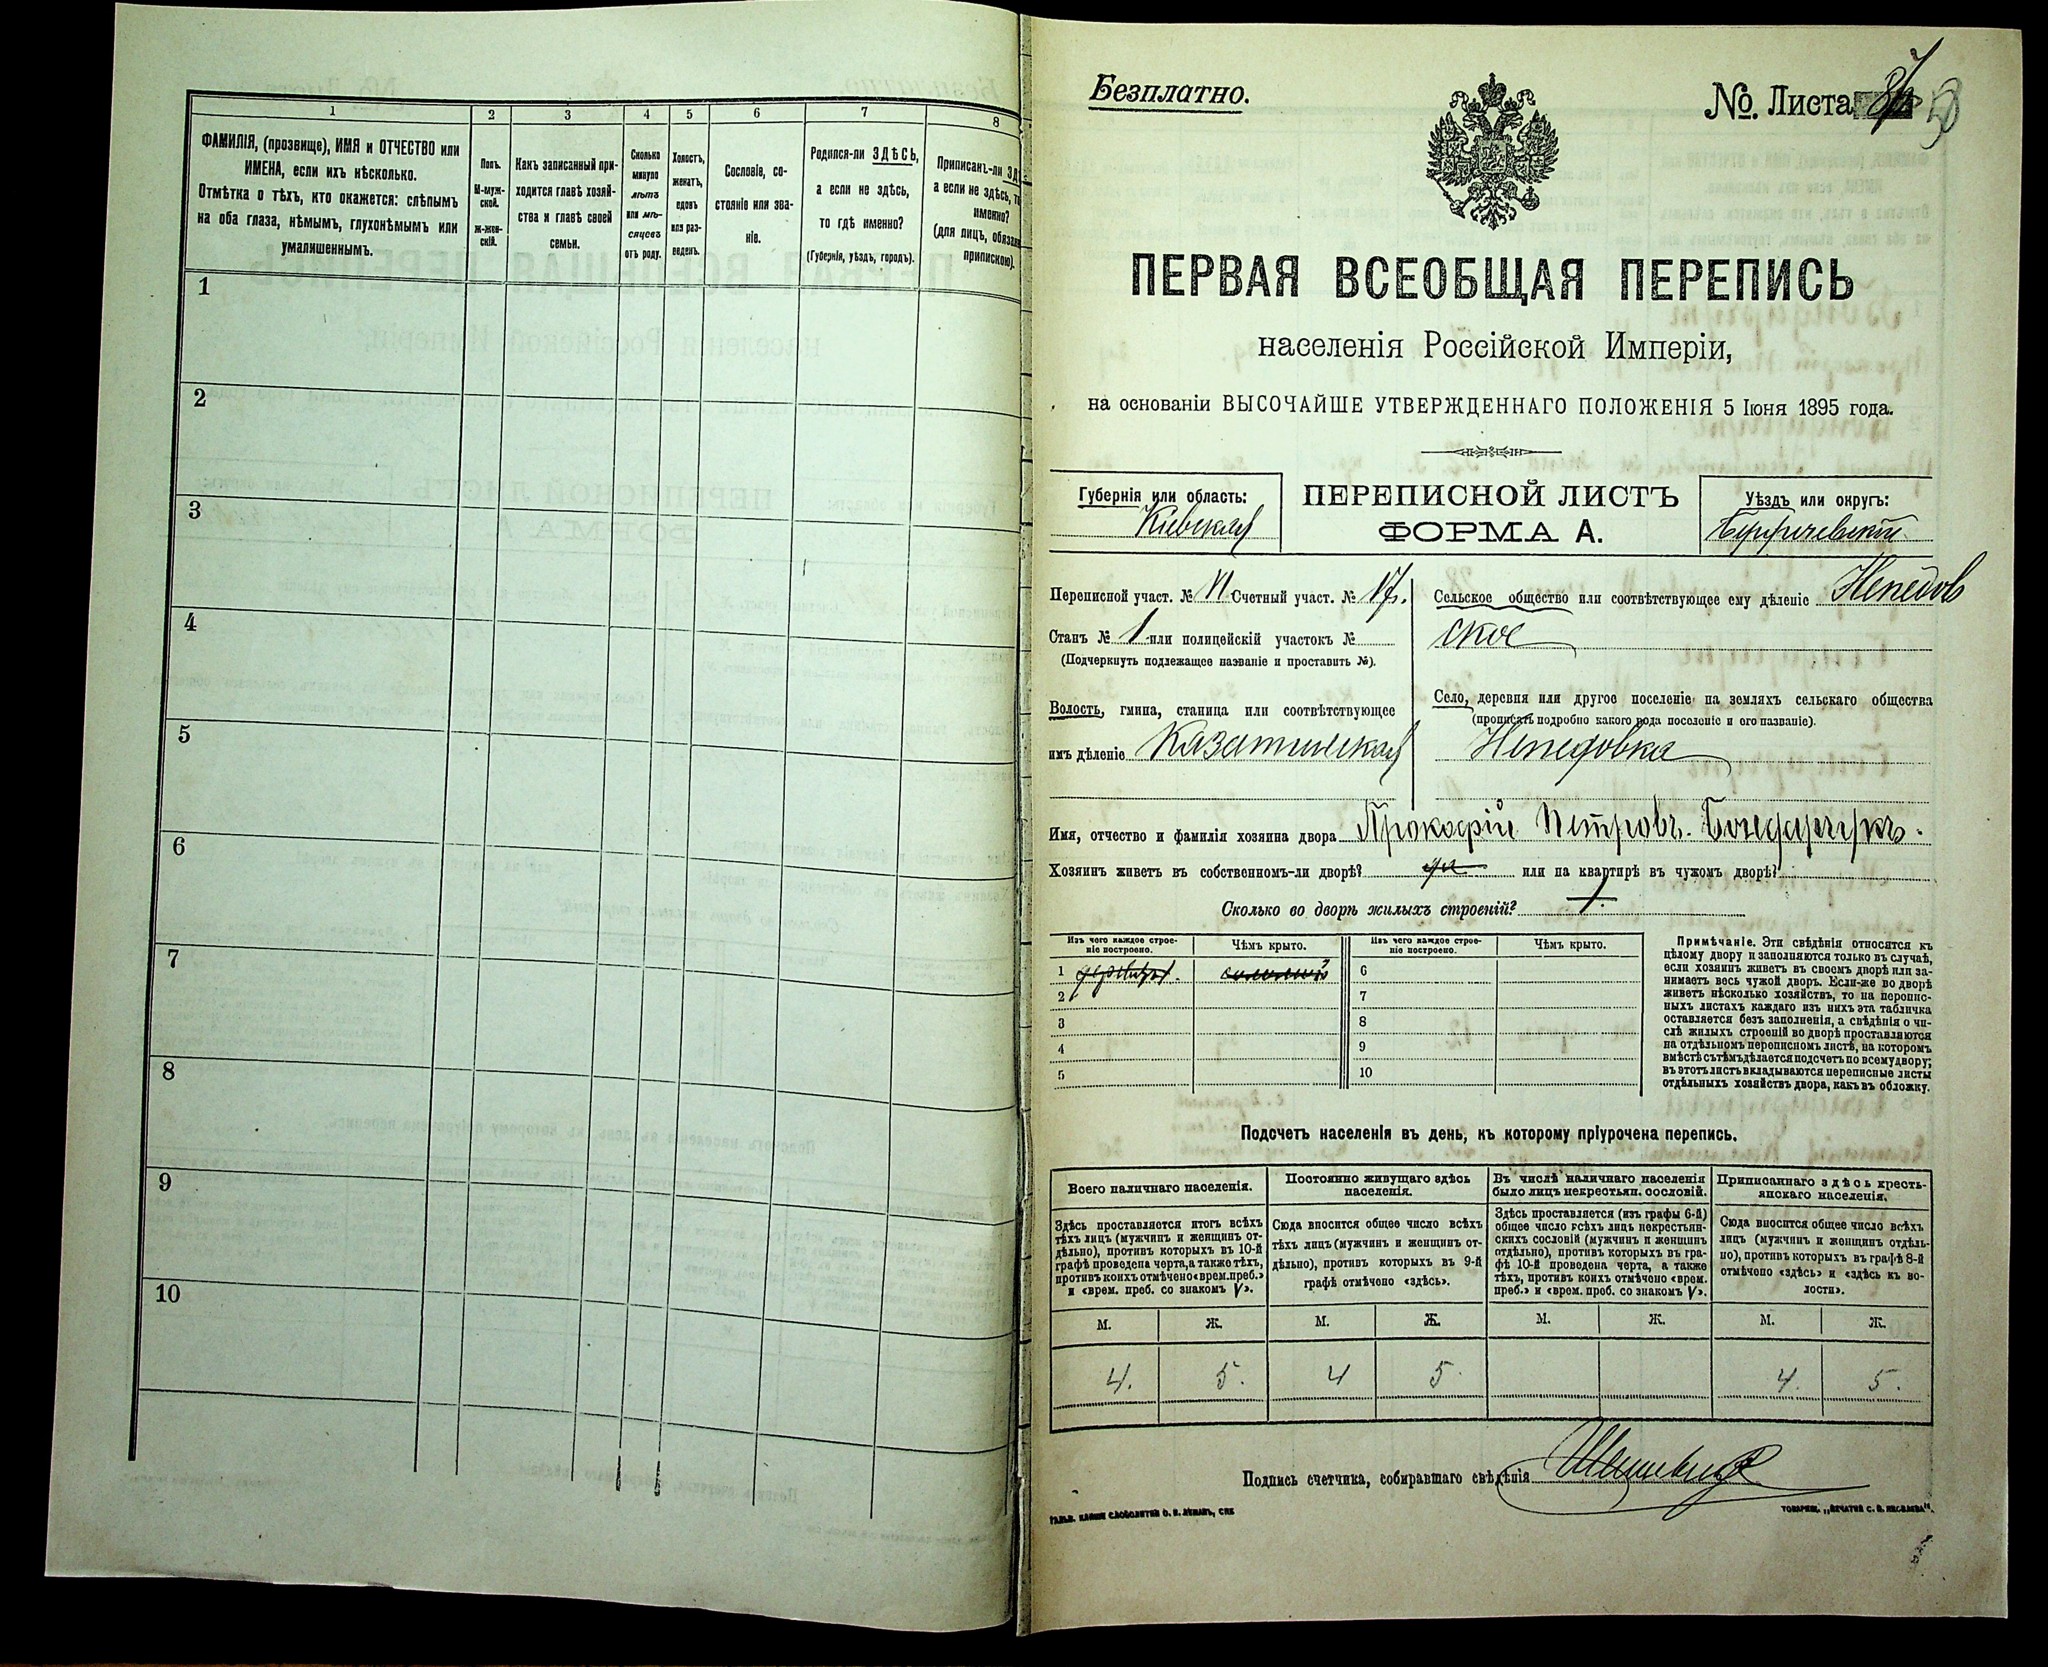 1
2
3
4
5
6
7
8
ФАМИЛІЯ, (прозвище), ИМЯ и ОТЧЕСТВО или
ИМЕНА, если ихъ нѣсколько.
Отмѣтка о тѣхъ, кто окажется: слѣпымъ
на оба глаза, нѣмымъ, глухонѣмымъ или
умалишеннымъ.
Полъ.
М-муж-
ской.
Ж-жен-
скій.
Какъ записанный при-
ходится главѣ хозяй-
ства и главѣ своей
семьи.
Сколько
минуло
лѣтъ
или мѣ-
сяцевъ
отъ роду.
Холостъ,
женатъ,
вдовъ
или раз-
веденъ.
Сословіе, со-
стояніе или зва-
ніе.
Родился-ли ЗДѢСЬ,
а если не здѣсь,
то гдѣ именно?
(Губернія, уѣздъ, городъ).
Приписанъ-ли
а если не здѣсь,
именно?
(для лицъ,
припискою).
1
2
3
4
5
6
7
8
9
10
Безплатно.
№. Листа
ПЕРВАЯ ВСЕОБЩАЯ ПЕРЕПИСЬ
населенія Россійской Имперіи,
на основаніи ВЫСОЧАЙШЕ УТВЕРЖДЕННАГО ПОЛОЖЕНІЯ 5 Іюня 1895 года.
Губернія или область:
Кіевская
ПЕРЕПИСНОЙ ЛИСТЪ
ФОРМА А.
Уѣздъ или округъ:
Бердичевскій
Переписной участ. № VI Счетный участ. № 17.
Станъ № 1 или полицейскій участокъ №
(Подчеркнуть подлежащее названіе и проставить №).
Волость, гмина, станица или соотвѣтствующее
имъ дѣленіе Казатинская
Сельское общество или соотвѣтствующее ему дѣленіе Непедов
ское
Село, деревня или другое поселеніе на земляхъ сельскаго общества
(прописать подробно какого рода поселеніе и его названіе).
Непедовка
Имя, отчество и фамилія хозяина двора Прокофій Петровъ Бондарчукъ.
Хозяинъ живетъ въ собственномъ-ли дворѣ? да или на квартирѣ въ чужомъ дворѣ?
Сколько во дворѣ жилыхъ строеній? 1.
Изъ чего каждое строе-
ніе построено.
Чѣмъ крыто.
Изъ чего каждое строе-
ніе построено.
Чѣмъ крыто.
1
соломой
6
2
7
3
8
4
9
5
10
Примѣчаніе. Эти свѣдѣнія относятся къ
цѣлому двору и заполняются только въ случаѣ,
если хозяинъ живетъ въ своемъ дворѣ или за-
нимаетъ весь чужой дворъ. Если-же во дворѣ
живетъ нѣсколько хозяйствъ, то на перепис-
ныхъ листахъ каждаго изъ нихъ эта табличка
оставляется безъ заполненія, а свѣдѣнія о чи-
слѣ жилыхъ строеній во дворѣ проставляются
на отдѣльномъ переписномъ листѣ, на которомъ
вмѣстѣ съ тѣмъ дѣлается подсчетъ по всему двору;
въ этотъ листъ вкладываются переписные листы
отдѣльныхъ хозяйствъ двора, какъ въ обложку.
Подсчетъ населенія въ день, къ которому пріурочена перепись.
Всего наличнаго населенія.
Постоянно живущаго здѣсь
населенія.
Въ числѣ наличнаго населенія
было лицъ некрестьян. сословій.
Приписаннаго здѣсь кресть-
янскаго населенія.
Здѣсь проставляется итогъ всѣхъ
тѣхъ лицъ (мужчинъ и женщинъ от-
дѣльно), противъ которыхъ въ 10-й
графѣ проведена черта, а также тѣхъ,
противъ коихъ отмѣчено «врем. преб.»
и «врем. преб. со знакомъ V».
Сюда вносится общее число всѣхъ
тѣхъ лицъ (мужчинъ и женщинъ от-
дѣльно), противъ которыхъ въ 9-й
графѣ отмѣчено «здѣсь».
Здѣсь проставляется (изъ графы 6-й)
общее число всѣхъ лицъ некрестьян-
скихъ сословій (мужчинъ и женщинъ
отдѣльно), противъ которыхъ въ гра-
фѣ 10-й проведена черта, а также
тѣхъ, противъ коихъ отмѣчено «врем.
преб.» и «врем. преб. со знакомъ V».
Сюда вносится общее число всѣхъ
лицъ (мужчинъ и женщинъ отдѣль-
но), противъ которыхъ въ графѣ 8-й
отмѣчено «здѣсь» и «здѣсь къ во-
лости».
М. Ж. М. Ж. М. Ж. М. Ж.
4. 5. 4 5. 4. 5.
Подпись счетчика, собиравшаго свѣдѣнія